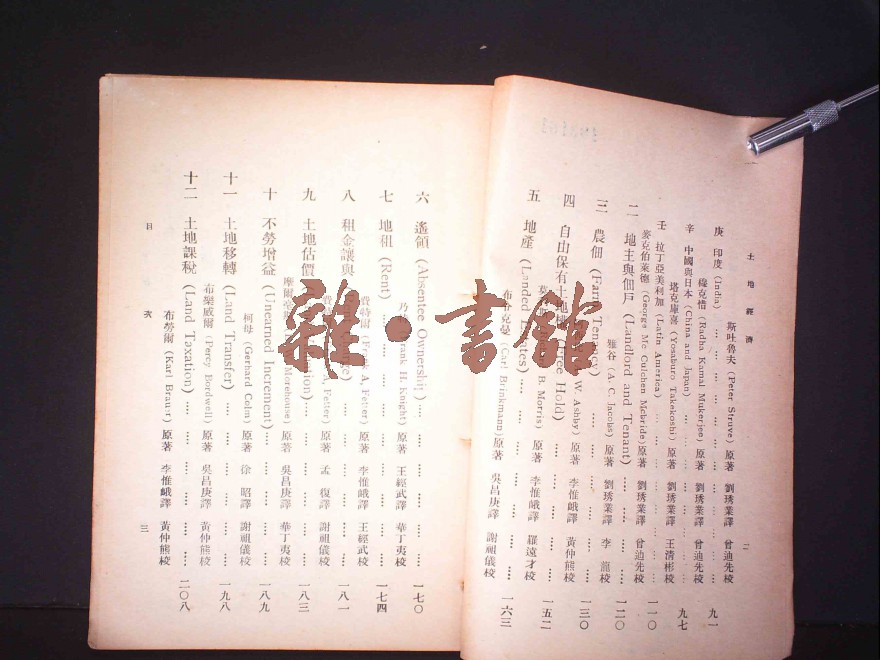 土地經濟
二
斯吐魯夫 (Peter Struve) 原著 劉琇業譯 曾迪先校
庚 印度 (India) …… 九一
穆克惜 (Radha Kamal Mukerjee) 原著 劉琇業譯 曾迪先校
辛 中國與日本 (China and Japan) …… 九七
塔克庫喜 (Yosaburo Takekoshi) 原著 劉琇業譯 王清彬校
壬 拉丁亞美利加 (Latin America) …… 一一〇
麥克伯萊德 (George Mc Cutchen Mcbride) 原著 劉琇業譯 曾迪先校
二 地主與佃戶 (Landlord and Tenant) …… 一二〇
雅谷 (A. C. Jacobs) 原著 劉琇業譯 李 龍校
三 農佃 (Farm Tenancy) …… 一三〇
W. Ashley) 原著 李惟峨譯 黃仲熊校
四 自由保有土地 Free Hold) …… 一五二
B. Morris) 原著 李惟峨譯 羅遠才校
五 地產 (Landed Estates) …… 一六三
布令克曼 (Carl Brinkmann) 原著 吳昌庚譯 謝祖儀校
六 遙領 (Absentee Ownership) …… 一七〇
Frank H. Knight) 原著 王經武譯 華丁夷校
七 地租 (Rent) …… 一七四
費特爾 (Frank A. Fetter) 原著 李惟峨譯 王經武校
八 租金讓與 …… 一八一
Fetter) 原著 孟 復譯 謝祖儀校
九 土地估價 …… 一八三
摩爾 Morehouse) 原著 吳昌庚譯 華丁夷校
十 不勞增益 (Unearned Increment) …… 一八九
柯母 (Gerhard Colm) 原著 徐 昭譯 謝祖儀校
十一 土地移轉 (Land Transfer) …… 一九八
布樂威爾 (Percy Bordwell) 原著 吳昌庚譯 黃仲熊校
十二 土地課稅 (Land Taxation) …… 二〇八
布勞爾 (Karl Brauer) 原著 李惟峨譯 黃仲熊校
目次
三
雜·書館